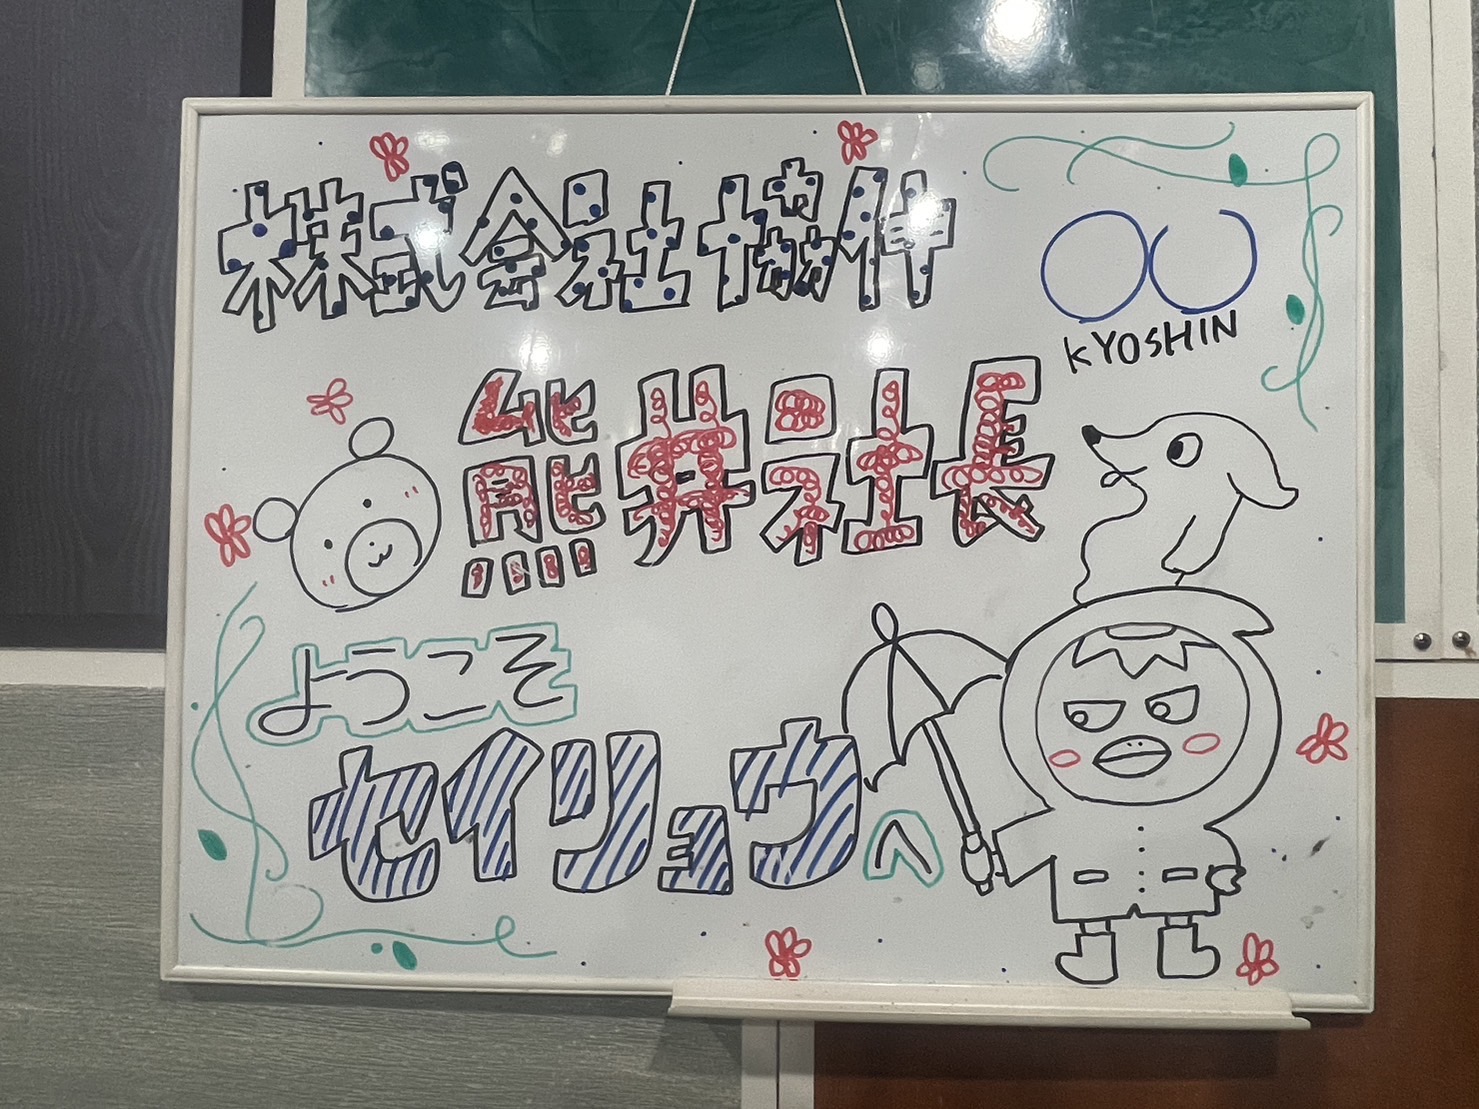 株式会社協伸
KYOSHIN
熊井社長
ようこそ
セイリョウへ